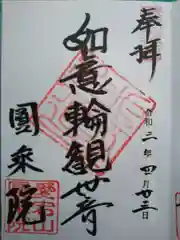 奉拝
令和二年四月廿三日
如意輪観世音
圓乗院